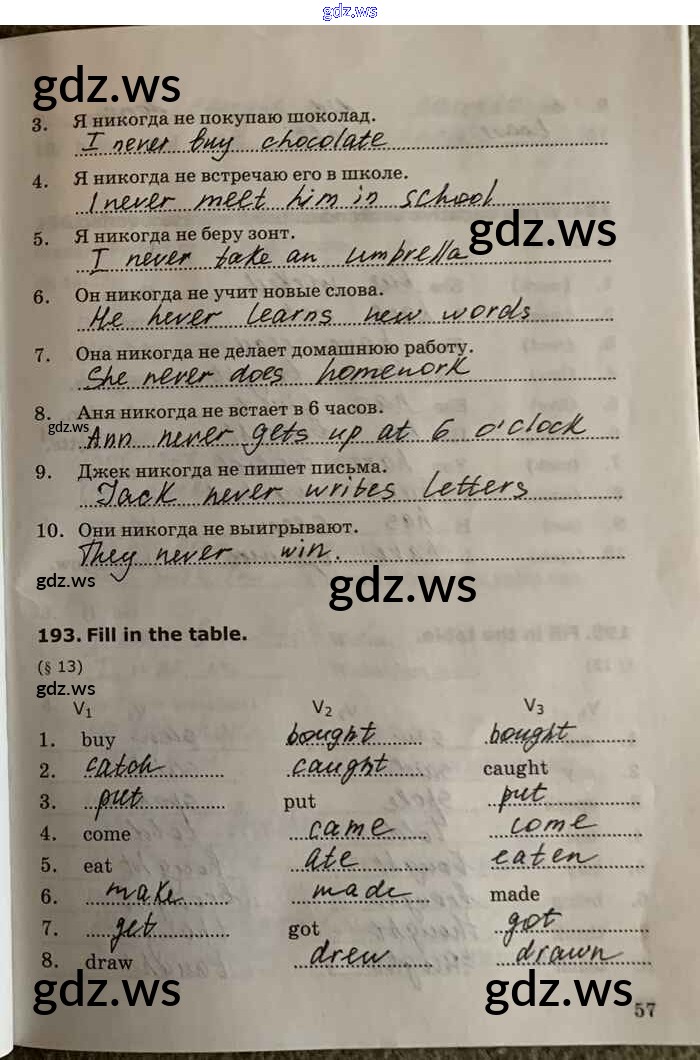 gdz.ws
gdz.ws
3. Я никогда не покупаю шоколад.
I never buy chocolate
4. Я никогда не встречаю его в школе.
I never meet him in school
gdz.ws
5. Я никогда не беру зонт.
I never take an umbrella
6. Он никогда не учит новые слова.
He never learns new words
7. Она никогда не делает домашнюю работу.
She never does homework
8. Аня никогда не встает в 6 часов.
gdz.ws
Ann never gets up at 6 o'clock
9. Джек никогда не пишет письма.
Jack never writes letters
10. Они никогда не выигрывают.
They never win.
gdz.ws
gdz.ws
193. Fill in the table.
(§ 13)
gdz.ws
V1 V2 V3
1. buy bought bought
2. catch caught caught
3. put put put
4. come came come
5. eat ate eaten
6. make made made
7. get got got
8. draw drew drawn
gdz.ws
gdz.ws
57